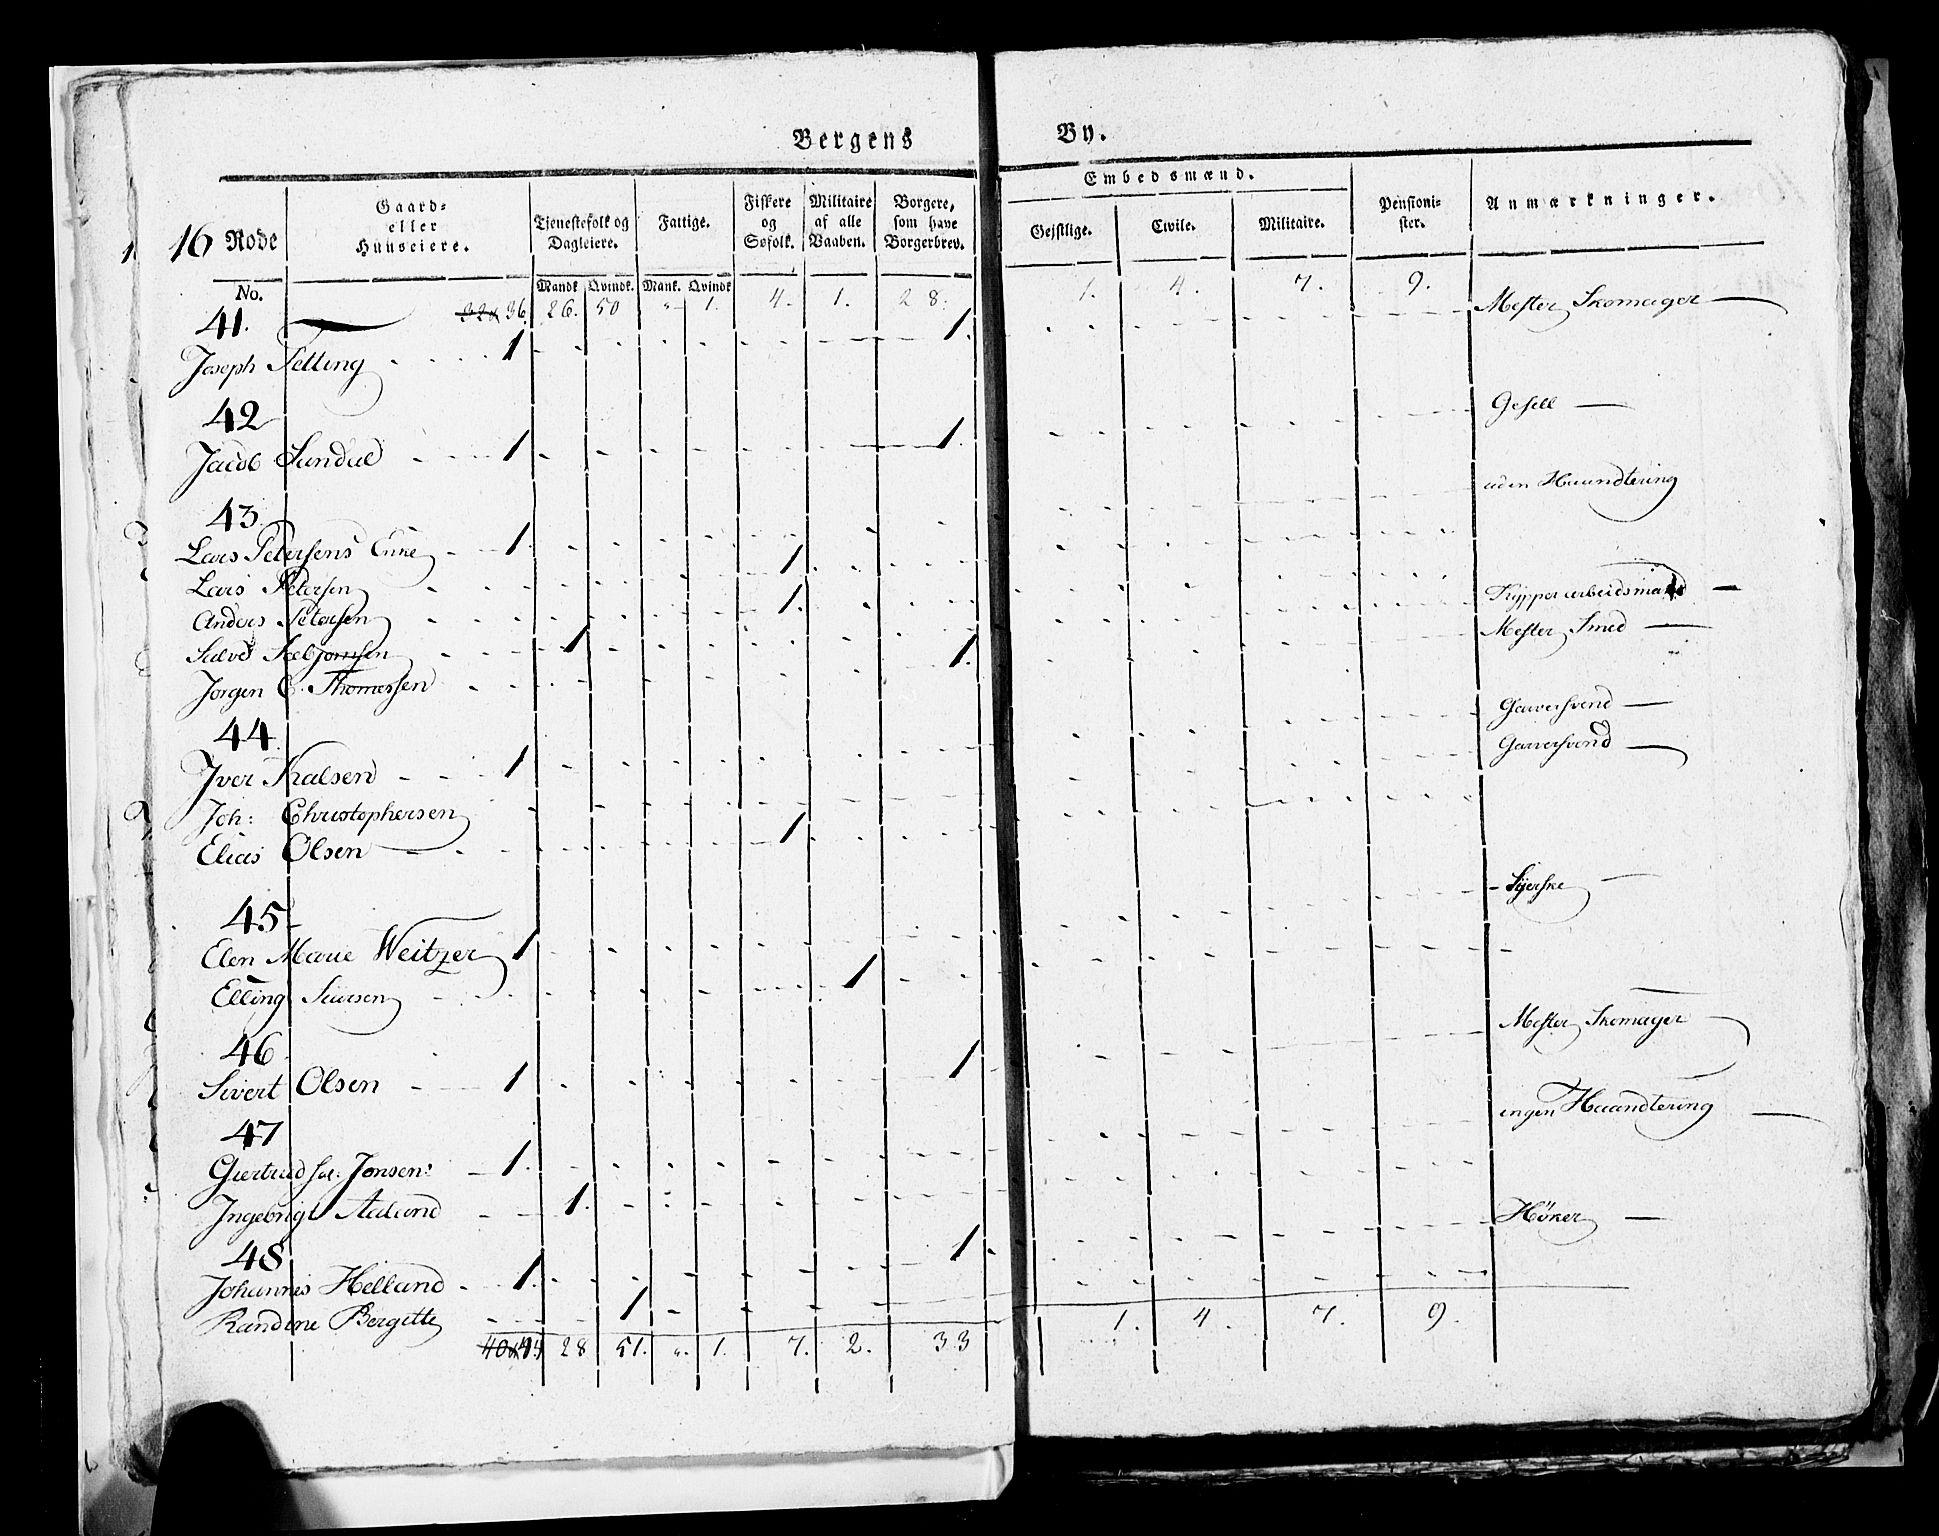 Bergens By.
16 Rode
No.
Gaard- eller Huuseiere.
Tjenestefolk og Dagleiere.
Mandk Qvindk.
Fattige.
Mank. Qvindk
Fiskere og Søfolk.
Militaire af alle Vaaben.
Borgere, som have Borgerbrev.
Embedsmænd.
Gejstlige. Civile. Militaire.
Pensionister.
Anmærkninger.
36. 26. 50 " 1. 4. 1. 28. 1. 4. 7. 9.
41.
Joseph Tetting 1 1. Mester Skomager
42
Jacob Sundal 1 1. Gesell
43
Lars Petersens Enke 1. uden Haandtering
Lars Petersen 1.
Anders Petersen 1.
Kypper arbeidsmand
Jørgen C. Thomessen 1. Mester Smed
44
Iver 1 Garversvend
Joh: Christophersen Garversvend
Elias Olsen 1.
45
Elen Marie Weitzer 1 Syerske
Elling Siursen 1
46
Sivert Olsen 1 1 Mester Skomager
47
Giertrud sal: Jonsen: 1. ingen Haandtering
Ingebrigt Aalund 1.
48
Johannes Helland 1. 1. Höker
Randine Bergitte 1
28 51. ". 1. 7. 2. 33 1. 4. 7. 9.